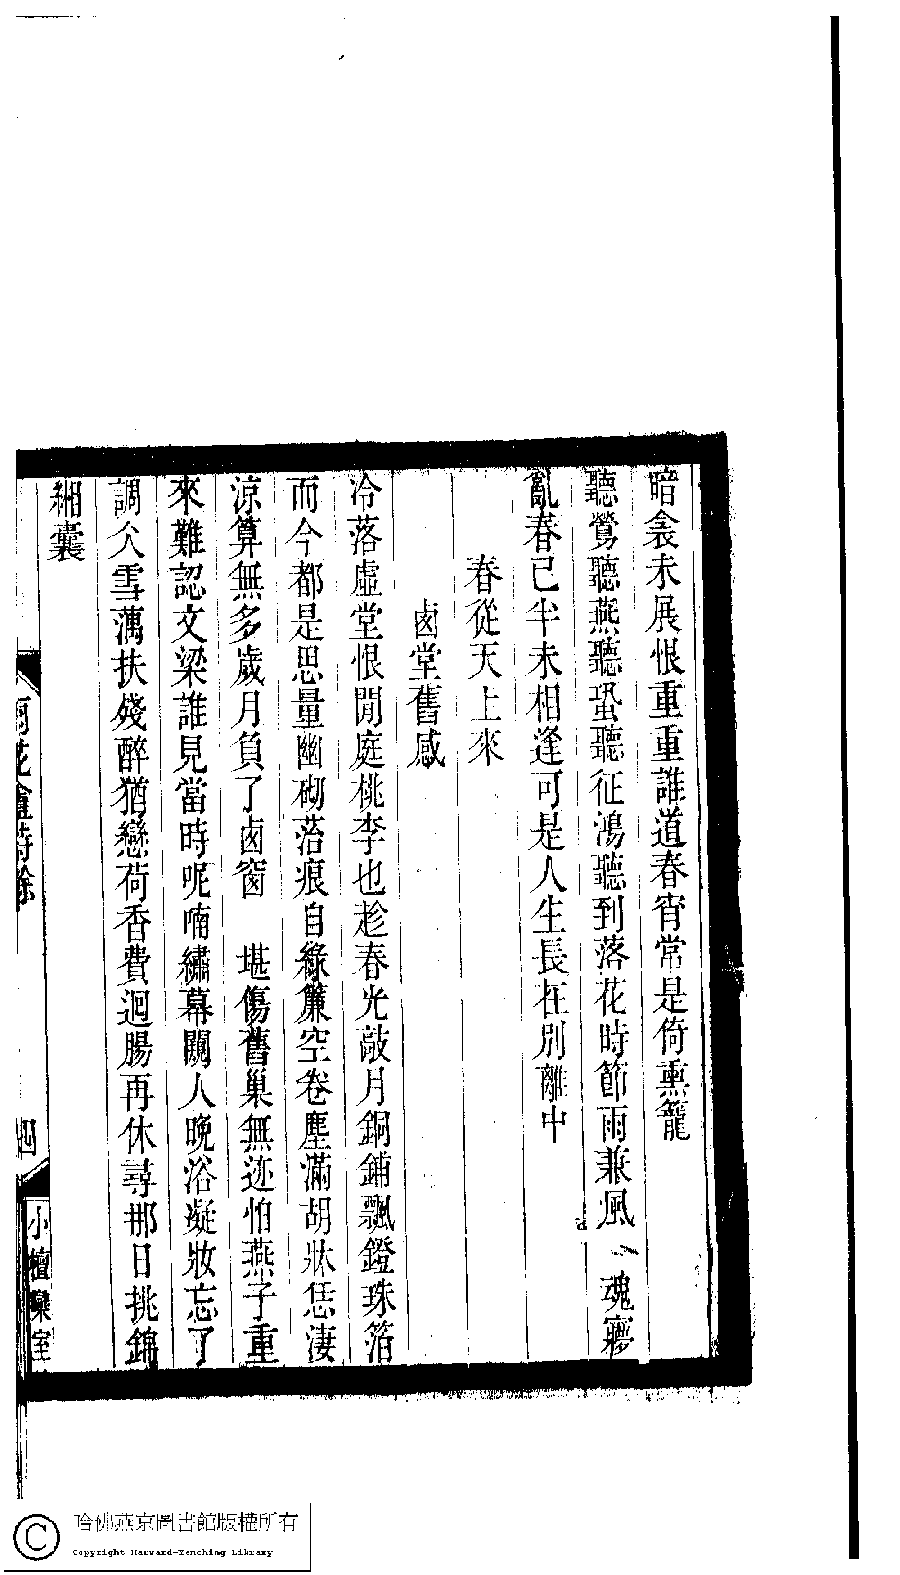 暗衾未展恨重重誰道春宵常是倚熏籠
聽鶯聽燕聽蛩聽征鴻聽到落花時節雨兼風　魂寢
亂春已半未相逢可是人生長在別離中
春從天上來
鹵堂舊感
冷落虛堂恨閒庭桃李也趁春光敲月銅鋪飄鐙珠箔
而今都是思量幽砌菭痕自綠簾空卷塵滿胡牀恁淒
涼算無多歲月負了鹵窗　堪傷舊巢無迹怕燕子重
來難認文梁誰見當時呢喃繡幕關人晚浴凝妝忘了
調仌雪藕扶殘醉猶戀荷香費迴腸再休尋那日挑錦
緗囊
花盦詩餘
四
小檀欒室
哈佛燕京圖書館版權所有
Copyright Harvard-Yenching Library